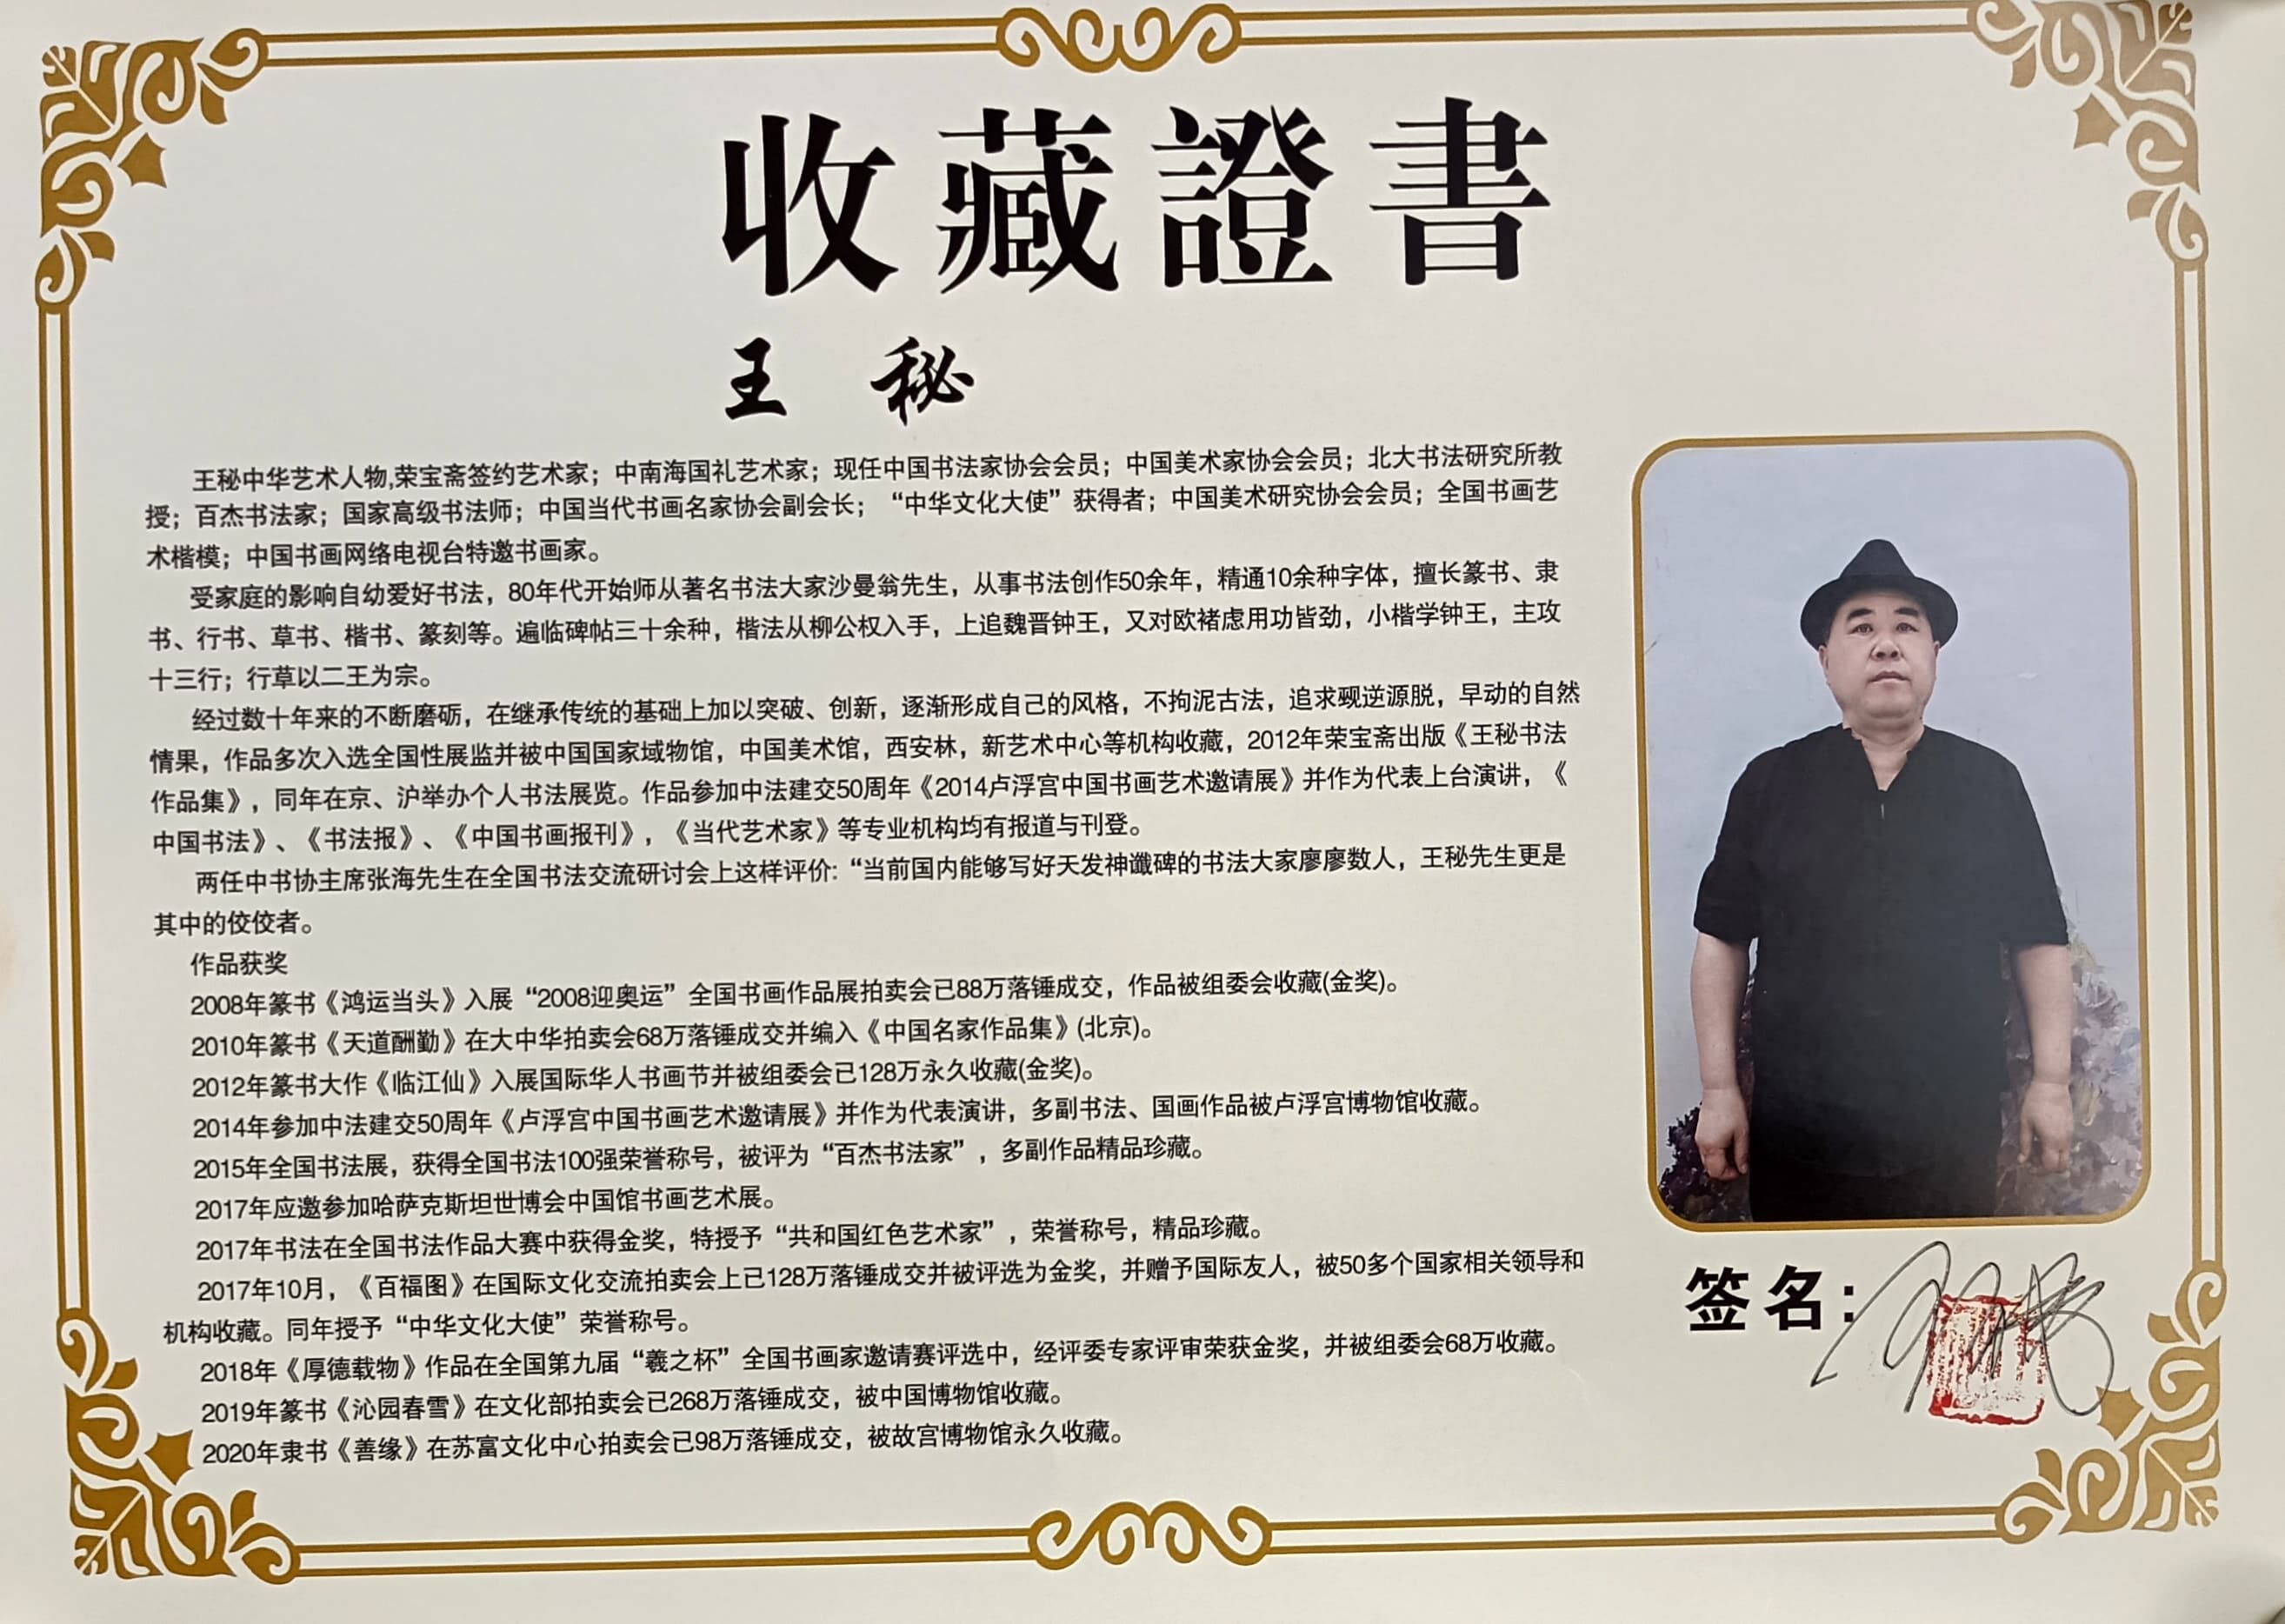 收藏證書
王 秘
王秘中华艺术人物,荣宝斋签约艺术家；中南海国礼艺术家；现任中国书法家协会会员；中国美术家协会会员；北大书法研究所教
授；百杰书法家；国家高级书法师；中国当代书画名家协会副会长；“中华文化大使”获得者；中国美术研究协会会员；全国书画艺
术楷模；中国书画网络电视台特邀书画家。
受家庭的影响自幼爱好书法，80年代开始师从著名书法大家沙曼翁先生，从事书法创作50余年，精通10余种字体，擅长篆书、隶
书、行书、草书、楷书、篆刻等。遍临碑帖三十余种，楷法从柳公权入手，上追魏晋钟王，又对欧褚虑用功皆劲，小楷学钟王，主攻
十三行；行草以二王为宗。
经过数十年来的不断磨砺，在继承传统的基础上加以突破、创新，逐渐形成自己的风格，不拘泥古法，追求觋逆源脱，早动的自然
情果，作品多次入选全国性展监并被中国国家域物馆，中国美术馆，西安林，新艺术中心等机构收藏，2012年荣宝斋出版《王秘书法
作品集》，同年在京、沪举办个人书法展览。作品参加中法建交50周年《2014卢浮宫中国书画艺术邀请展》并作为代表上台演讲，《
中国书法》、《书法报》、《中国书画报刊》，《当代艺术家》等专业机构均有报道与刊登。
两任中书协主席张海先生在全国书法交流研讨会上这样评价:“当前国内能够写好天发神谶碑的书法大家廖廖数人，王秘先生更是
其中的佼佼者。
作品获奖
2008年篆书《鸿运当头》入展“2008迎奥运”全国书画作品展拍卖会已88万落锤成交，作品被组委会收藏(金奖)。
2010年篆书《天道酬勤》在大中华拍卖会68万落锤成交并编入《中国名家作品集》(北京)。
2012年篆书大作《临江仙》入展国际华人书画节并被组委会已128万永久收藏(金奖)。
2014年参加中法建交50周年《卢浮宫中国书画艺术邀请展》并作为代表演讲，多副书法、国画作品被卢浮宫博物馆收藏。
2015年全国书法展，获得全国书法100强荣誉称号，被评为“百杰书法家”，多副作品精品珍藏。
2017年应邀参加哈萨克斯坦世博会中国馆书画艺术展。
2017年书法在全国书法作品大赛中获得金奖，特授予“共和国红色艺术家”，荣誉称号，精品珍藏。
2017年10月，《百福图》在国际文化交流拍卖会上已128万落锤成交并被评选为金奖，并赠予国际友人，被50多个国家相关领导和
机构收藏。同年授予“中华文化大使”荣誉称号。
2018年《厚德载物》作品在全国第九届“羲之杯”全国书画家邀请赛评选中，经评委专家评审荣获金奖，并被组委会68万收藏。
2019年篆书《沁园春雪》在文化部拍卖会已268万落锤成交，被中国博物馆收藏。
2020年隶书《善缘》在苏富文化中心拍卖会已98万落锤成交，被故宫博物馆永久收藏。
签名: